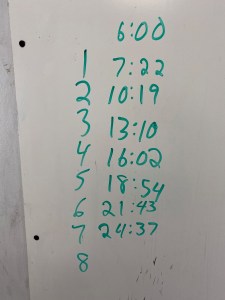 6:00
1 7:22
2 10:19
3 13:10
4 16:02
5 18:54
6 21:43
7 24:37
8